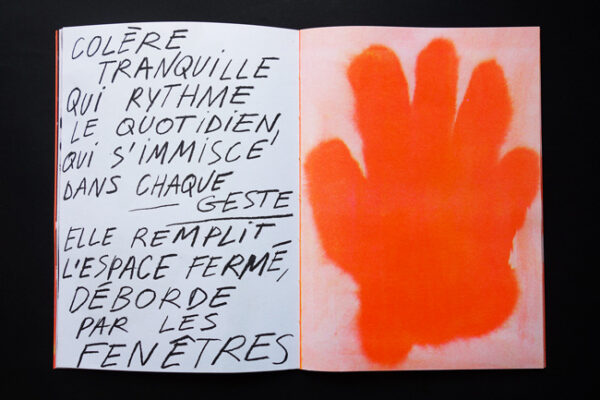 COLÈRE
TRANQUILLE
QUI RYTHME
LE QUOTIDIEN,
QUI S'IMMISCE
DANS CHAQUE
GESTE
ELLE REMPLIT
L'ESPACE FERMÉ,
DÉBORDE
PAR LES
FENÊTRES